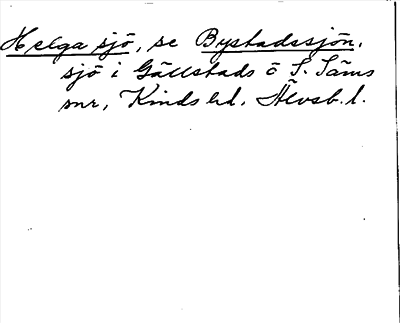 Helga sjö, se Bystadssjön,
sjö i Gällstads o S. Säms
snr, Kinds hd, Älvsb. l.